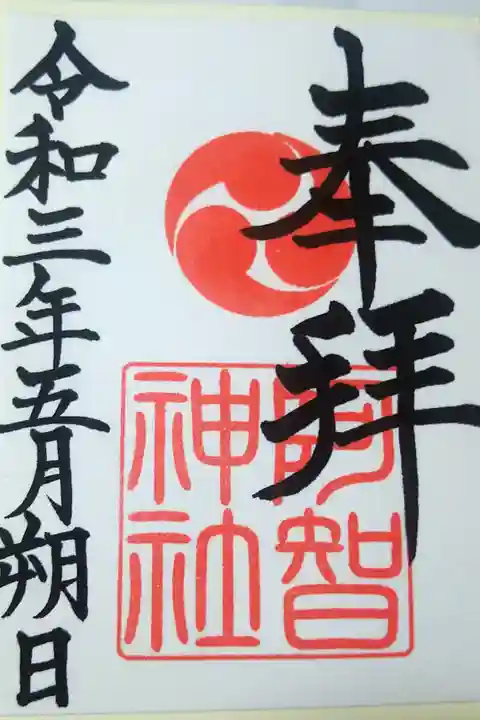 奉拝
阿智
神社
令和三年五月朔日